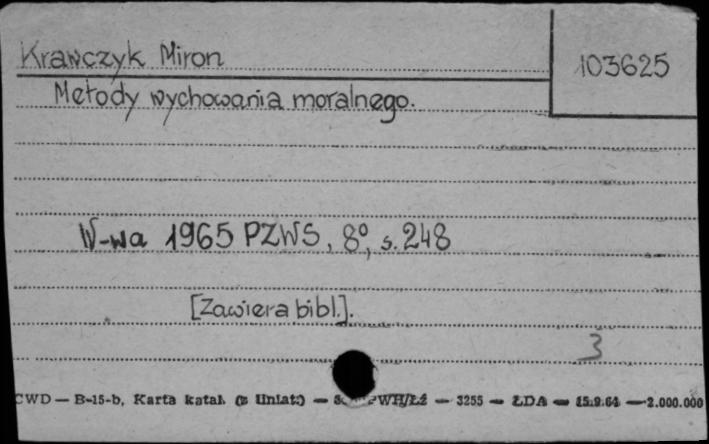 Krawczyk Miron
103625
Metody wychowania moralnego.
W-wa 1965 PZWS, 8°, s. 248
[Zawiera bibl.].
3
CWD — B-15-b, Karta katal. — 3255 — ŁDA — 15.9.64 — 2.000.000